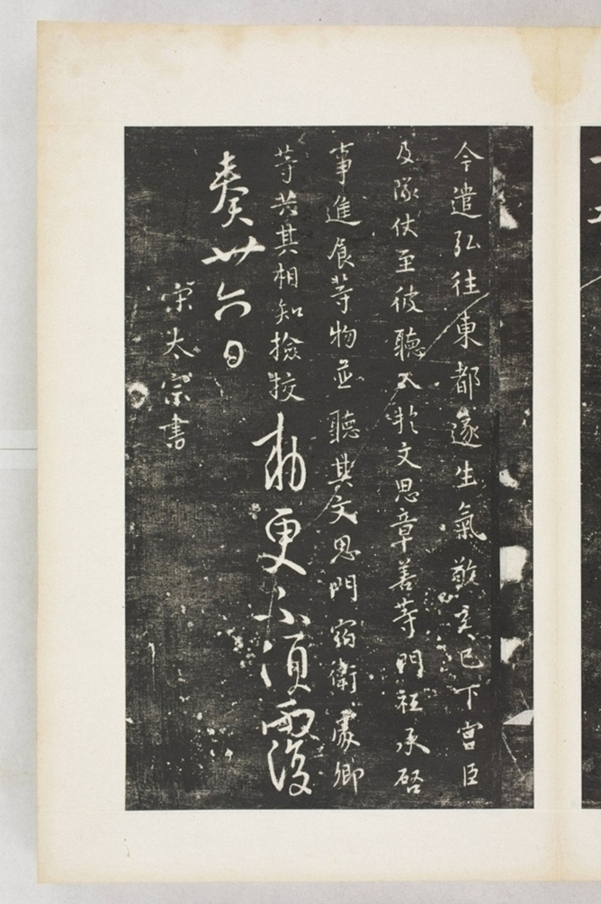 今遣弘往東都遂生氣敬玄已下宮臣
及隊仗至彼聽入於文思章善等門祗承啓
事進食等物並聽其文思門宿衛處卿
等共其相知撿挍勑更不須覆
奏廿六日
宋太宗書